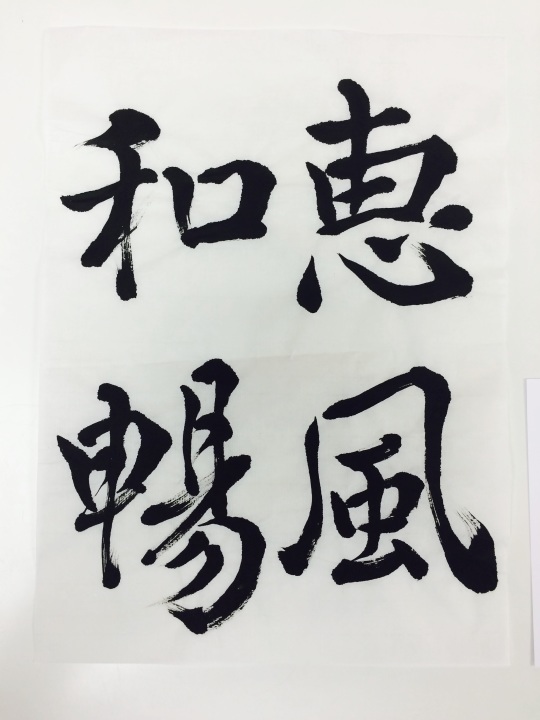 恵風
和暢